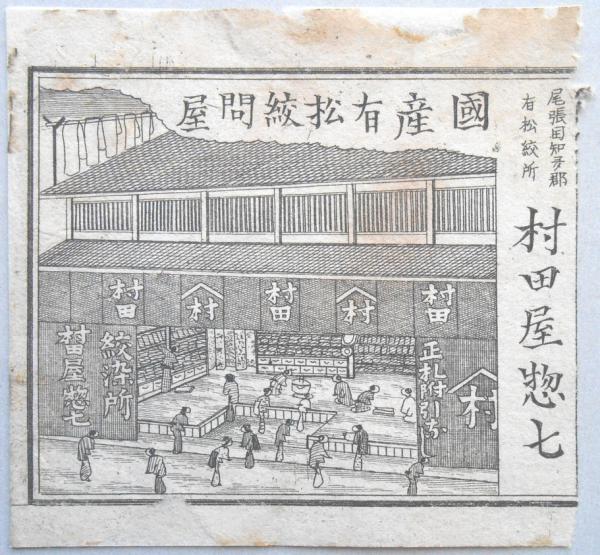 國産有松絞問屋
尾張国知多郡
有松絞所
村田屋惣七
村田
村
村田
村
村田
正札附引なし
村
絞染所
村田屋惣七